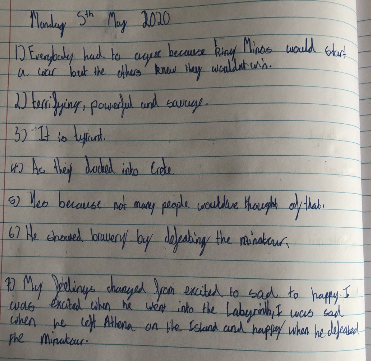 Monday 5th May 2020
1) Everybody had to agree because King Minos would start
a war but the others knew they wouldnt win.
2) terrifying, powerful and savage.
3) It is tyrant.
4) As they docked into Crete
5) Yes because not many people wouldve thought of that.
6) He showed bravery by defeating the minataur.
7) My feelings changed from excited to sad to happy. I
was excited when he went into the Labyrinth, I was sad
when he left Athena on the Island and happy when he defeated
the Minataur.